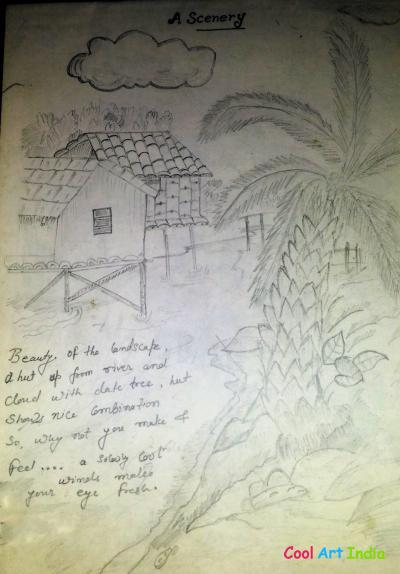 A Scenery
Beauty of the landscape,
A hut up form river and
Cloud with date tree, hut
Shows nice Combination
So, why not you make &
feel.... a slowly cool
winds makes
your eye fresh.
Cool Art India